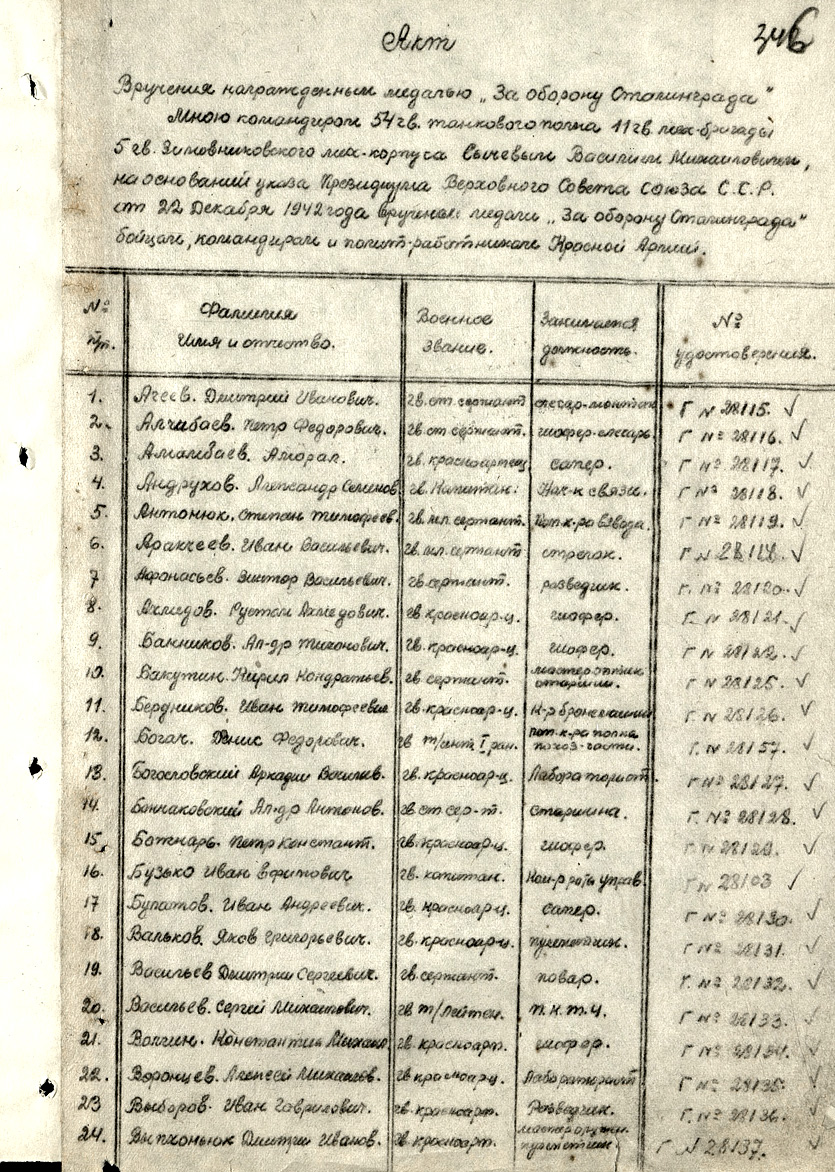 Акт
346
Вручения награжденным медалью „За оборону Сталинграда"
Мною командиром 54 гв. танкового полка 11 гв. мех-бригады
5 гв. Зимовниковского мех-корпуса Сычевым Василием Михайловичем,
на основании указа Президиума Верховного Совета Союза С.С.Р.
от 22 Декабря 1942 года вручены медали „За оборону Сталинграда"
бойцам, командирам и полит-работникам Красной Армии.
№ п/п. Фамилия Имя и отчество. Военное звание. Занимается должность. № удостоверения.
1. Агеев. Дмитрий Иванович. гв. ст. сержант слесар-монтаж Г № 28115. ✓
2. Алчибаев. Петр Федорович. гв. ст. сержант. шофер-слесарь Г № 28116. ✓
3. Амамбаев. Аморал. гв. красноармеец сапер. Г № 28117. ✓
4. Андрухов. Александр Семенов гв. Капитан. Нач-к связи. Г № 28118. ✓
5. Антонюк. Степан Тимофеев. гв. мл. сержант. Пом. к-ра взвода. Г № 28119. ✓
6. Аракчеев. Иван Васильевич. гв. мл. сержант стрелок. Г № ✓
7 Афонасьев. Виктор Васильевич. гв. сержант. разведчик. Г. № 28120. ✓
8. Ахмедов. Рустам Ахмедович. гв. красноар-ц. шофер. Г. № 28121. ✓
9. Банников. Ал-др Тихонович. гв. красноар-ц. шофер. Г № 28122. ✓
10. Бакутин. Кирил Кондратьев. гв. сержант. мастер оптик старши. Г № 28125. ✓
11. Бердников. Иван Тимофеевич гв. красноар-ц. к-р бронемашин Г № 28126. ✓
12. Богач. Денис Федорович. гв т/инт I ран. пом. к-ра полка по хоз-части. Г № 28157. ✓
13. Богословский Аркадий Василев. гв. красноар-ц. Лабораторист. Г № 28127. ✓
14. Ал-др Антонов. гв ст сер-т. старшина. Г. № 28128. ✓
15. Божнарь. Петр Констант. гв. красноар-ц. шофер. Г № 28129. ✓
16. Бузько Иван Ефимович гв. капитан. Ком-р роты управ. Г № 28103 ✓
17 Булатов. Иван Андреевич. гв. красноар-ц. сапер. Г № 28130. ✓
18. Вальков. Яков Григорьевич. гв. красноар-ц. пулеметчик. Г № 28131. ✓
19. Васильев Дмитрий Сергеевич. гв. сержант. повар. Г. № 28132. ✓
20. Васильев. Сергей Михайлович. гв т/лейтен. п.к.т.ч. Г № 28133. ✓
21. Волгин. Константин Михаил гв. красноарм. шофер. Г № 28134. ✓
22. Воронцев. Алексей Михайлов. гв красноар-ц. Лабораторист Г № 28135. ✓
23 Выборов. Иван Гаврилович. гв. красноарм. Разведчик. Г. № 28136. ✓
24. Выпхонюк Дмитрий Иванов. гв. красноарм. мастер оружен. пулеметчик Г № 28137. ✓